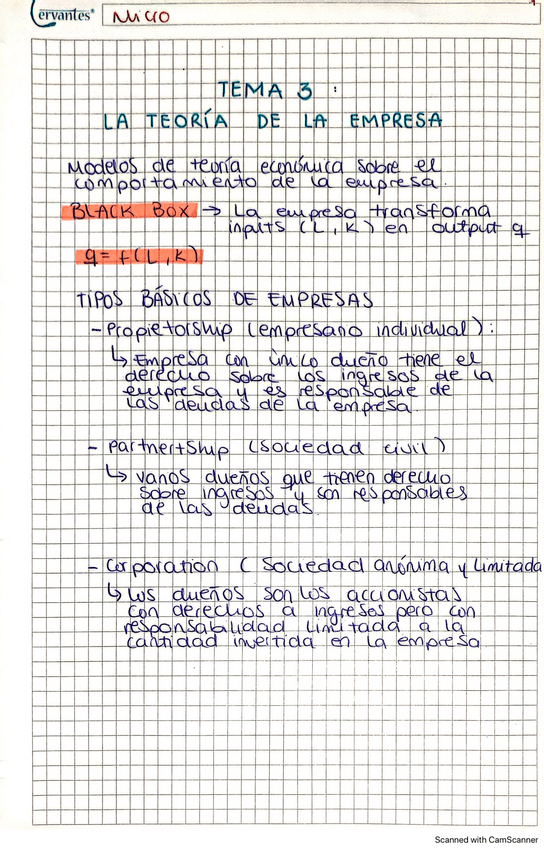 Cervantes®
Micro
TEMA 3 :
LA TEORÍA DE LA EMPRESA
Modelos de teoría económica sobre el
comportamiento de la empresa.
BLACK BOX → La empresa transforma
inputs (L, K) en output q
q = f(L, K)
TIPOS BÁSICOS DE EMPRESAS
- Propietorship (empresario individual):
↳ Empresa con único dueño tiene el
derecho sobre los ingresos de la
empresa y es responsable de
las deudas de la empresa.
- Partnertship (sociedad civil)
↳ varios dueños que tienen derecho
sobre ingresos y son responsables
de las deudas.
- Corporation ( Sociedad anónima y Limitada
↳ Los dueños son los accionistas
con derechos a ingresos pero con
responsabilidad limitada a la
cantidad invertida en la empresa
Scanned with CamScanner